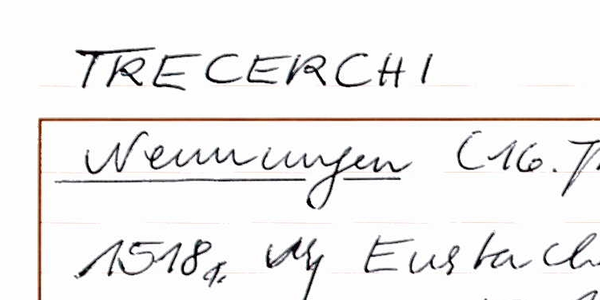 TRECERCHI
Nennungen (16. J
1518, Eustach